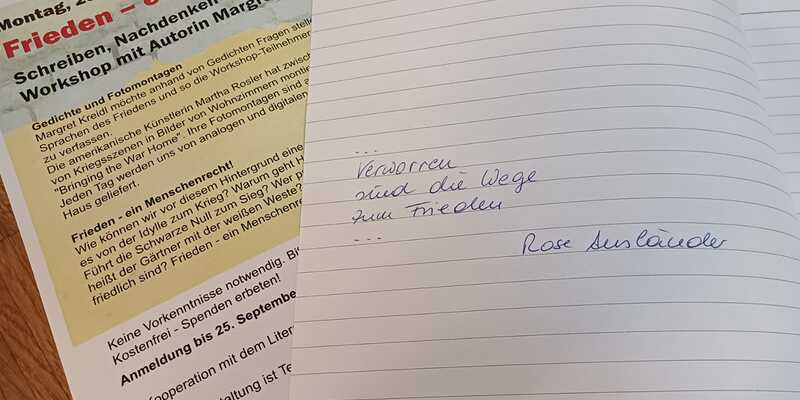 Montag, 2
Frieden –
Schreiben, Nachdenken
Workshop mit Autorin Margre
Gedichte und Fotomontagen
Margret Kreidl möchte anhand von Gedichten Fragen stelle
Sprachen des Friedens und so die Workshop-Teilnehmer
zu verfassen.
Die amerikanische Künstlerin Martha Rosler hat zwisch
von Kriegsszenen in Bilder von Wohnzimmern montie
"Bringing the War Home". Ihre Fotomontagen sind a
Jeden Tag werden uns von analogen und digitalen
Haus geliefert.
Frieden - ein Menschenrecht!
Wie können wir vor diesem Hintergrund eine
es von der Idylle zum Krieg? Warum geht H
Führt die Schwarze Null zum Sieg? Wer p
heißt der Gärtner mit der weißen Weste?
friedlich sind? Frieden - ein Menschenre
Keine Vorkenntnisse notwendig. Bi
Kostenfrei - Spenden erbeten!
Anmeldung bis 25. Septembe
ooperation mit dem Liter
taltung ist Te
...
Verworren
sind die Wege
zum Frieden
...
Rose Ausländer